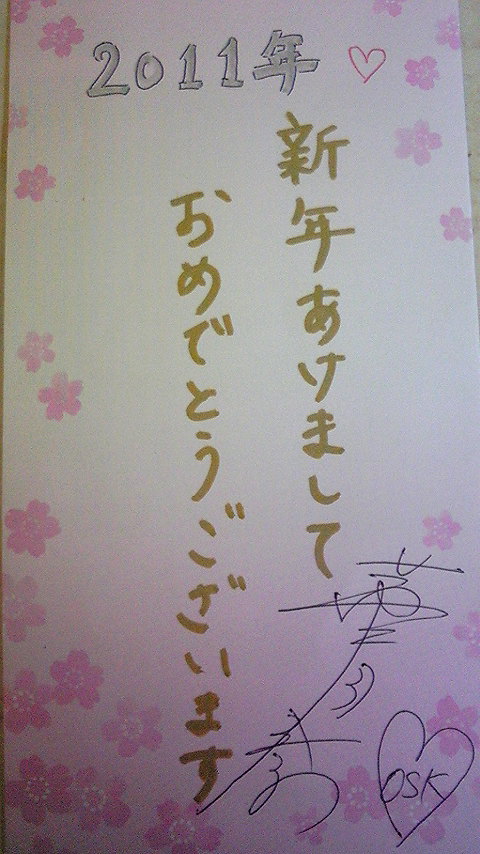 2011年
新年あけまして
おめでとうございます
OSK